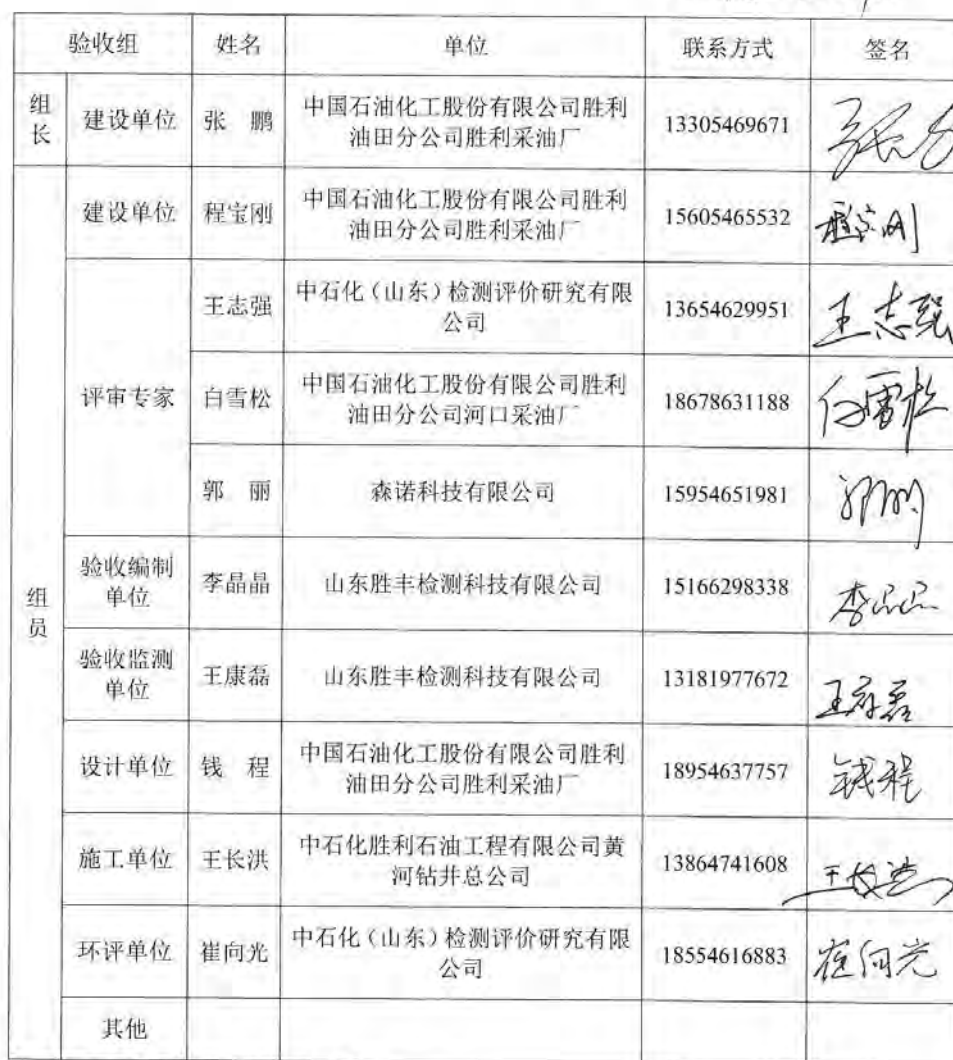 验收组 姓名 单位 联系方式 签名
组长 建设单位 张 鹏 中国石油化工股份有限公司胜利
油田分公司胜利采油厂 13305469671
组员
建设单位 程宝刚 中国石油化工股份有限公司胜利
油田分公司胜利采油厂 15605465532 程宝刚
评审专家
王志强 中石化（山东）检测评价研究有限
公司 13654629951 王志强
白雪松 中国石油化工股份有限公司胜利
油田分公司河口采油厂 18678631188 白雪松
郭 丽 森诺科技有限公司 15954651981 郭丽
验收编制
单位 李晶晶 山东胜丰检测科技有限公司 15166298338 李晶晶
验收监测
单位 王康磊 山东胜丰检测科技有限公司 13181977672 王康磊
设计单位 钱 程 中国石油化工股份有限公司胜利
油田分公司胜利采油厂 18954637757 钱程
施工单位 王长洪 中石化胜利石油工程有限公司黄
河钻井总公司 13864741608 王长洪
环评单位 崔向光 中石化（山东）检测评价研究有限
公司 18554616883 崔向光
其他